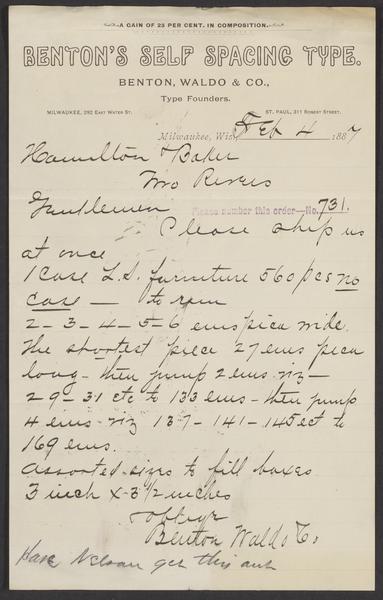 A GAIN OF 25 PER CENT. IN COMPOSITION.
BENTON'S SELF SPACING TYPE.
BENTON, WALDO & CO.,
Type Founders.
MILWAUKEE, 292 EAST WATER ST. ST. PAUL, 311 ROBERT STREET.
Milwaukee, Wis. Feb 4 1887
Hamilton & Baker
Two Rivers
Gentlemen Please number this order—No. 731.
Please ship us
at once
1 Case L.S. furniture 560 pcs no
case — to run
2 - 3 - 4 - 5 - 6 ems pica wide.
The shortest piece 27 ems pica
long - then jump 2 ems. viz -
29 - 31 etc to 133 ems - then jump
4 ems - viz 137 - 141 - 145 ect to
169 ems.
Assorted sizes to fill boxes
3 inch x 3 1/2 inches
Benton Waldo & Co.
Have Nelson get this out